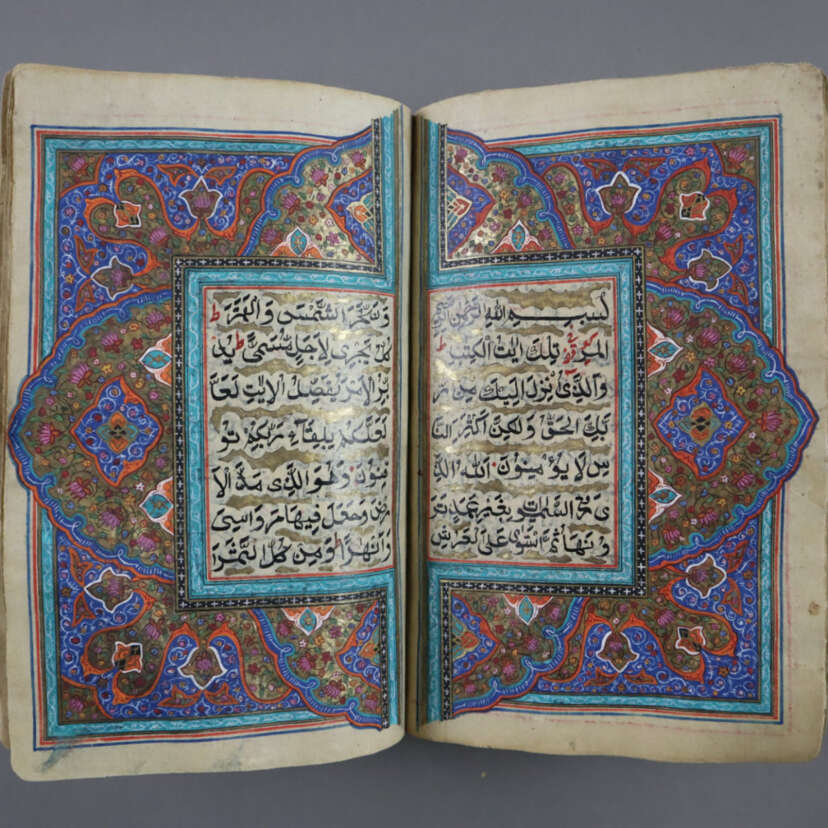 بسم الله الرحمن الرحيم
المر تلك ايت الكتب ط
والذى انزل اليك من ر
بك الحق ولكن اكثر النا
س لا يؤمنون الله الذ
ى رفع السموت بغير عمد تر
ونها ثم استوى على العرش
وسخر الشمس والقمر ط
كل يجرى لاجل مسمى ط يد
بر الامر يفصل الايت
لعلكم بلقاء ربكم تو
قنون وهو الذى مد الا
رض وجعل فيها رواسى
وانهرا ومن كل الثمرا